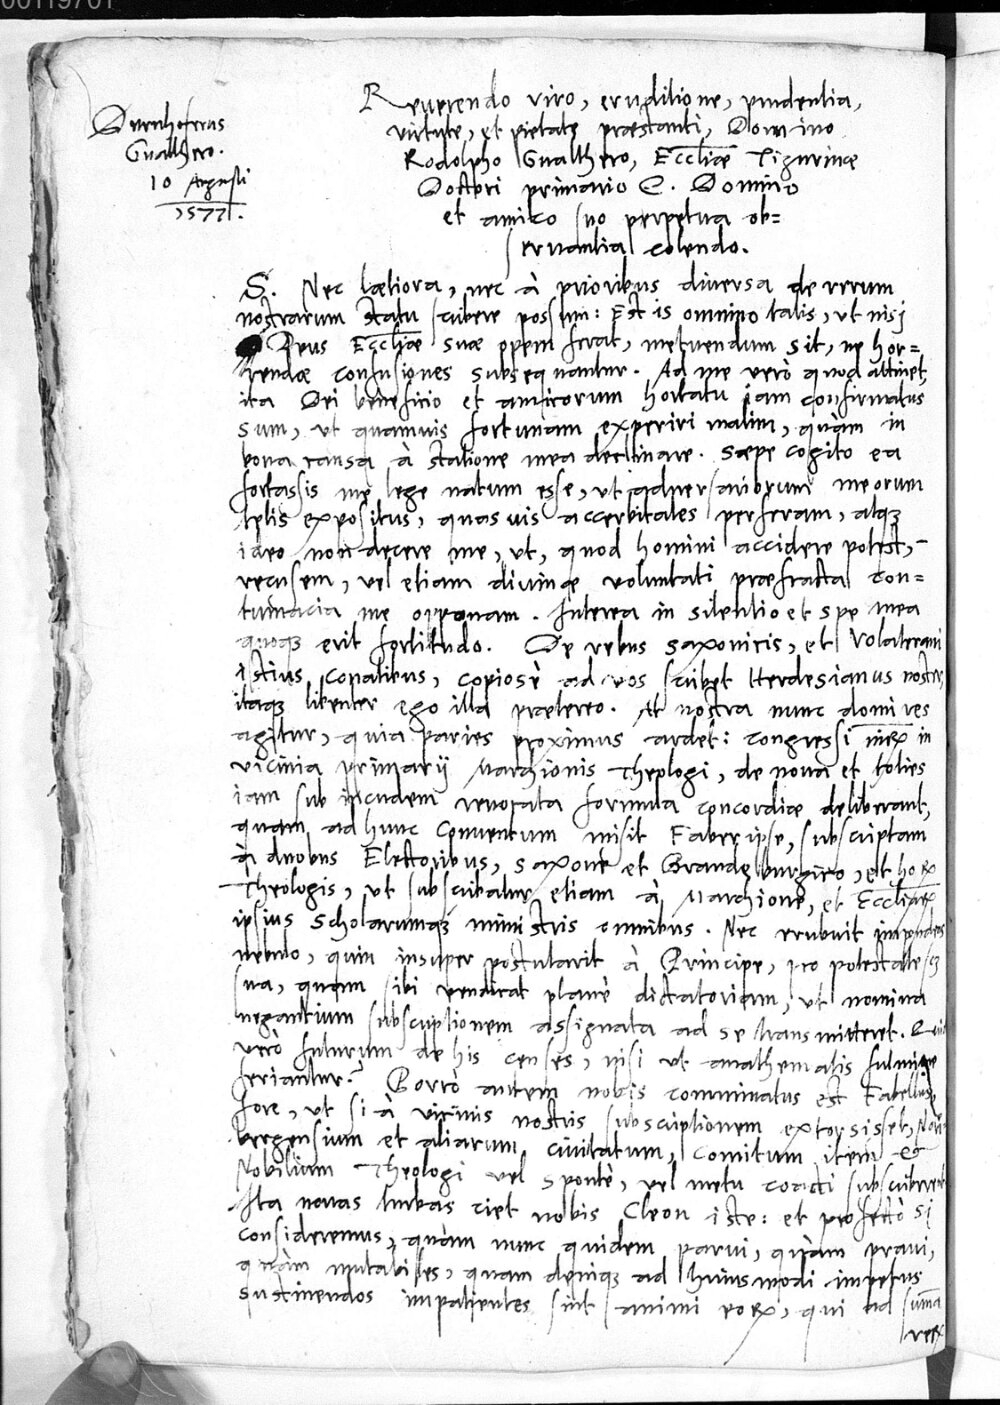 00119701
Durnhoferus
Gualthero.
10 Augusti
1577.
Reverendo viro, eruditione, prudentia,
virtute, et pietate præstanti, Domino
Rodolpho Gualthero, Eccliæ Tigurinæ
Doctori primario &. Domino
et amico suo perpetua ob=
servantia colendo.
S. Nec lætiora, nec à prioribus diversa de rerum
nostrarum statu scribere possum: Est is omnino talis, ut nisi
Deus Eccliæ suæ opem ferat, metuendum sit, ne hor=
rendæ confusiones subsequantur. Ad me verò quod attinet,
ita Dei beneficio et amicorum hortatu iam confirmatus
sum, ut quamvis fortunam experiri malim, quàm in
bona causa à statione mea declinare. Sæpe cogito ea
fortassis me lege natum esse, ut adversariorum meorum
telis expositus, quasvis accerbitates perferam, atq
ideo non decere me, ut, quod homini accidere potest,
recusem, vel etiam divinæ voluntati præfracta con=
tumacia me opponam. Interea in silentio et spe mea
quoq erit fortitudo. De rebus Saxonicis, et Volaterani
istius conatibus, copiosè ad vos scribet Herdesianus noster,
itaq libenter ego illa prætereo. At nostra nunc domi res
agitur, quia paries proximus ardet: congressi in
vicinia primarij Marchionis Theologi, de nova et toties
iam sub incudem revocata formula concordiæ deliberant,
quam ad hunc conventum misit Faber ipse, subscriptam
à duobus Electoribus, Saxone et Brandeburgico, et hor
Theologis, ut subscribatur etiam à Marchione, et Eccliar
ipsius Scholarumq ministris omnibus. Nec erubuit impudens
nebulo, quin insuper postularit à Principe, pro potestate
sua, quam sibi vendicat planè dictatoriam, ut nomina
negantium subscriptionem assignata ad se transmitteret. Quid
verò futurum de his censes, nisi ut anathematis fulmine
feriantur? Porrò autem nobis comminatus est Fabellus,
fore, ut si à vicinis nostris subscriptionem extorsisset, Nori
bergensium et aliarum civitatum, Comitum item et
Nobilium Theologi vel spontè, vel metu coacti subscriberent
Ita novas turbas ciet nobis Cleon iste: et profectò si
consideremus, quàm nunc quidem parvi, quàm pravi,
quàm mutabiles, quam deniq ad huiusmodi impetus
sustinendos impatientes sint animi eor, qui ad summa
rer